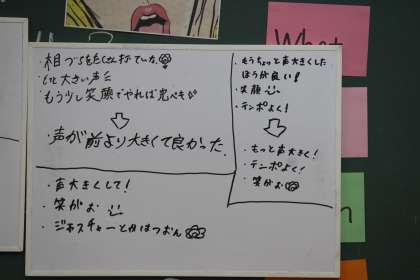 ・相づちをたくさん打っていた
・もっと大きい声に
・もう少し笑顔でやれば完ペキ
・声が前より大きくて良かった.
・もうちょっと声大きくした
ほうが良い!
・笑顔
・テンポよく!
・もっと声大きく!
・テンポよく!
・笑がお
・声大きくして!
・笑がお
・ジェスチャーとかはつおん
What